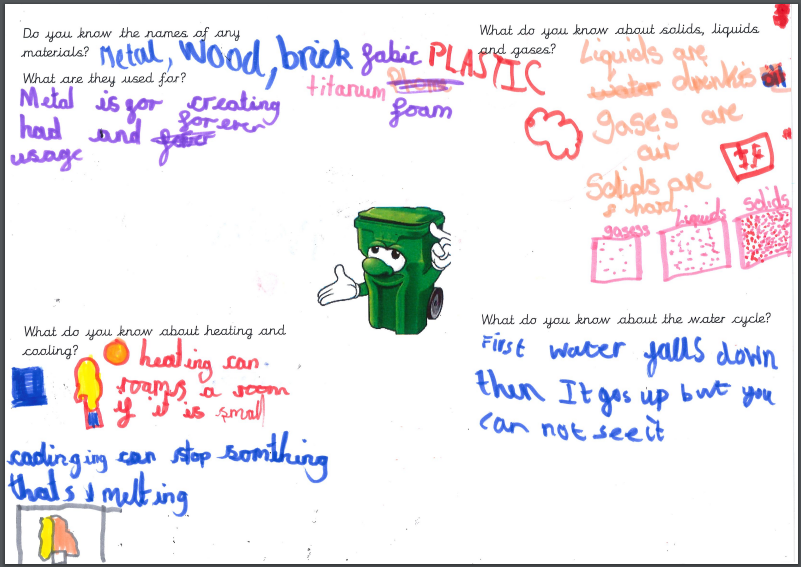 Do you know the names of any
materials? Metal, Wood, brick fabic PLASTIC
What are they used for?
titanum
foam
Metal is for creating
had and for ever
usage
What do you know about solids, liquids
and gases?
Liquids are
water drinkes oil
gases are
air
Solids are
hard
gasess Liquids Solids
What do you know about heating and
cooling?
heating can
roams a room
if it is small
coolinging can stop somthing
thats melting
What do you know about the water cycle?
First water falls down
then It gos up but you
can not see it